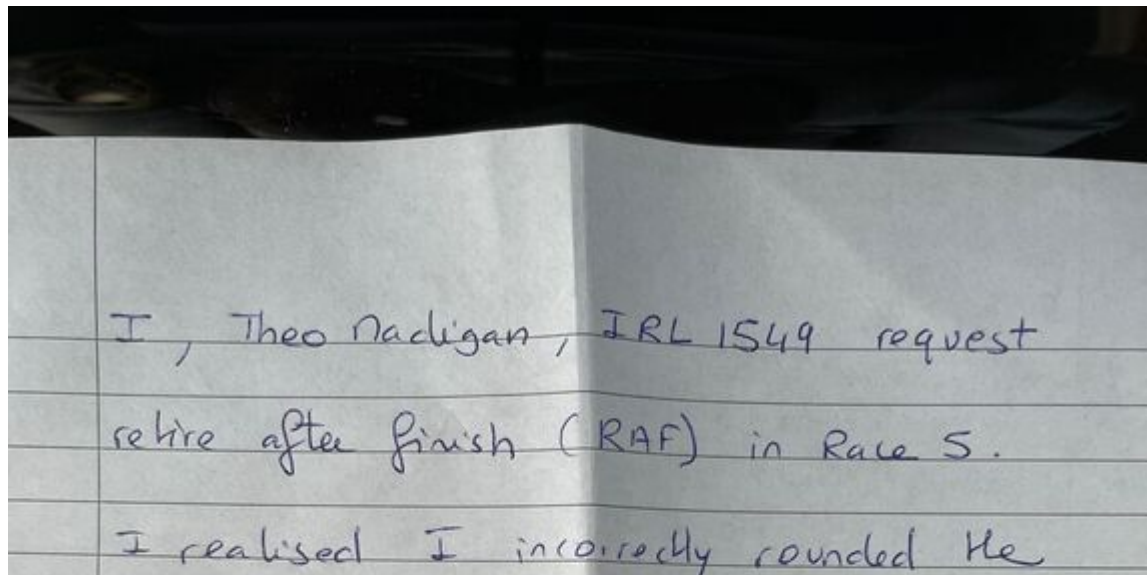 I, Theo Madigan, IRL 1549 request
retire after finish (RAF) in Race 5.
I realised I incorrectly rounded the